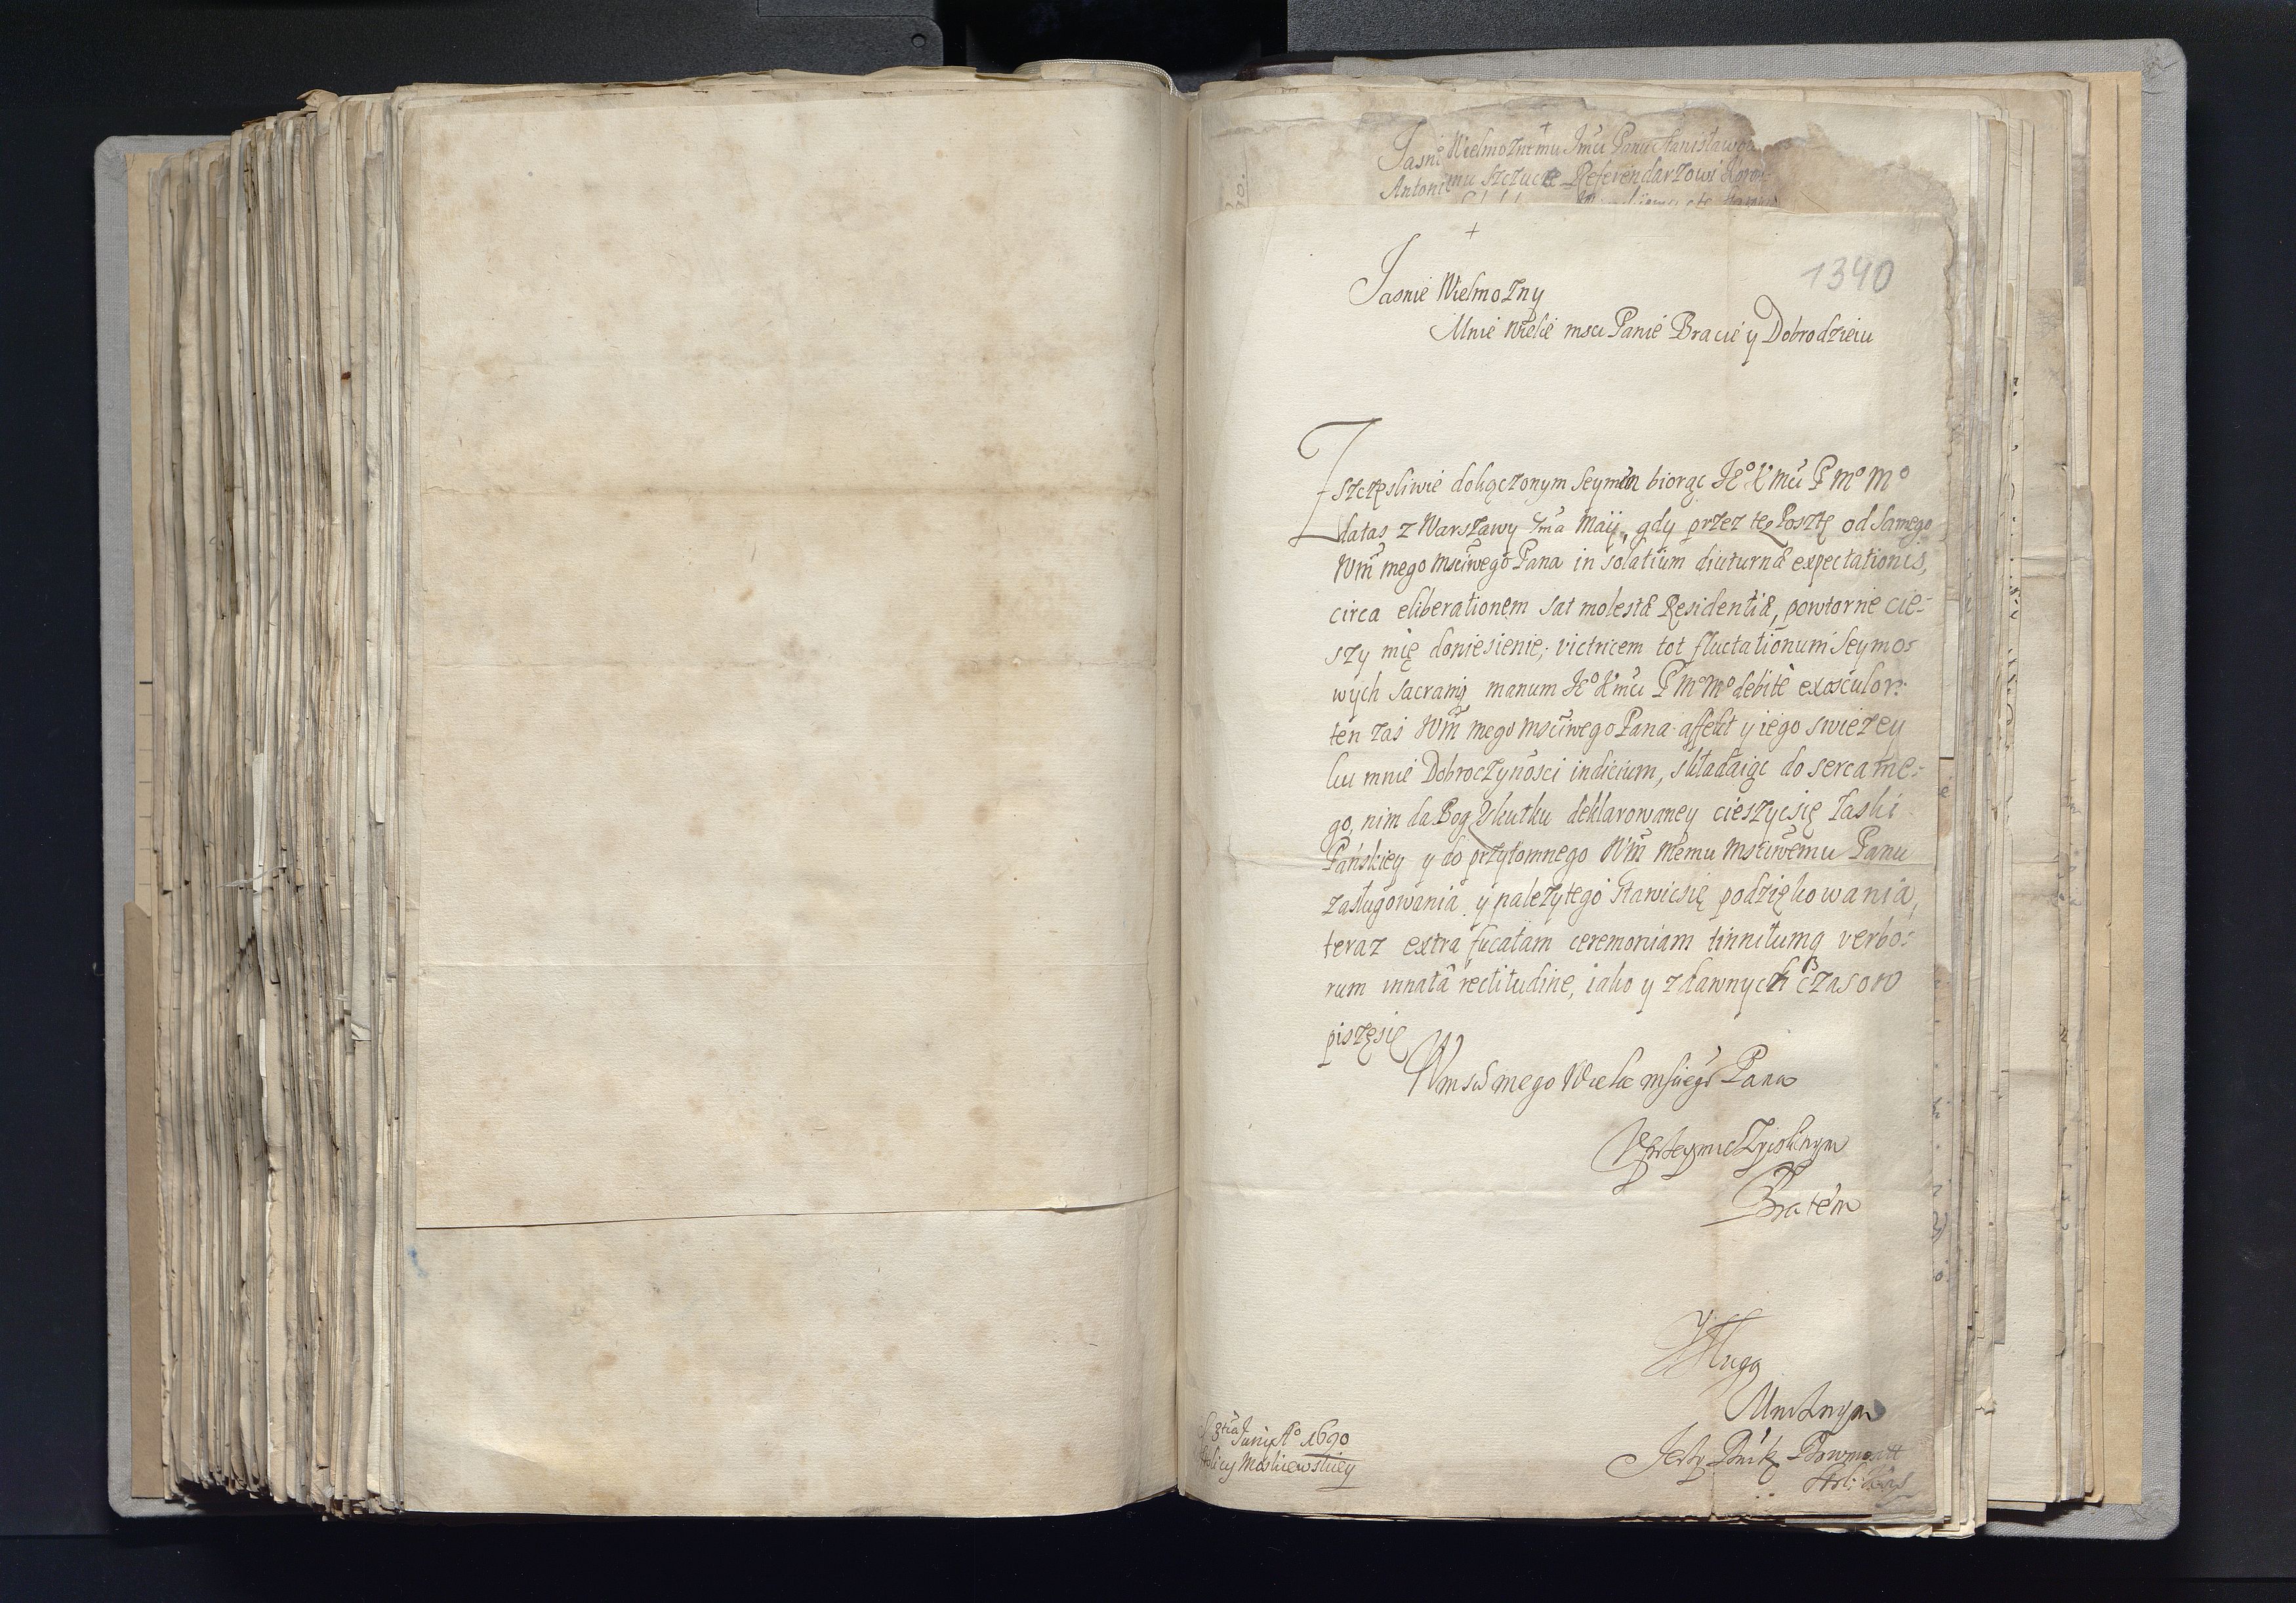 Jasnie Wielmożnemu Jmci Panu Stanisławowi
Antoniemu Szczuce Referendarzowi Koron:
+
1340
Jasnie Wielmożny
Mnie Wielce msci Panie Bracie y Dobrodzieiu
Z szczęsliwie dokączonym Seymem biorąc Je° K mci P m° m°
datas z Warszawy 7ma Maij, gdy przez tę Posztę od samego
Wm̃ mego Msciwego Pana in solatium diuturnæ expectationis,
circa eliberationem sat molestæ Residentiæ, powtornie cie-
szy mię doniesienie; victricem tot fluctationum Seymo-
wych sacramq manum Je° K mci P M° M° debitè exosculor:
ten zas Wm̃ mego Msciwego Pana affekt y iego swiezey
ku mnie Dobroczynosci indicium, składaiąc do serca me-
go, nim da Bog skutku deklarowaney cieszyc się Łaski
Pańskiey y do przytomnego Wm̃ memu Msciwemu Panu
zasługowania y należytego stawic się podziękowania,
teraz extra fucatam ceremoniam tinnitumq verbo-
rum innatâ rectitudine, iako y z dawnych czasow
piszę się
Wmsci mego Wielce msciego Pana
Uprzeymie Zyczliwym
Bratem
y Sługą
Uniżnym
Jerzy Dominik Dowmontt
8tia Junij A° 1690
stolicy Moskiewskiey